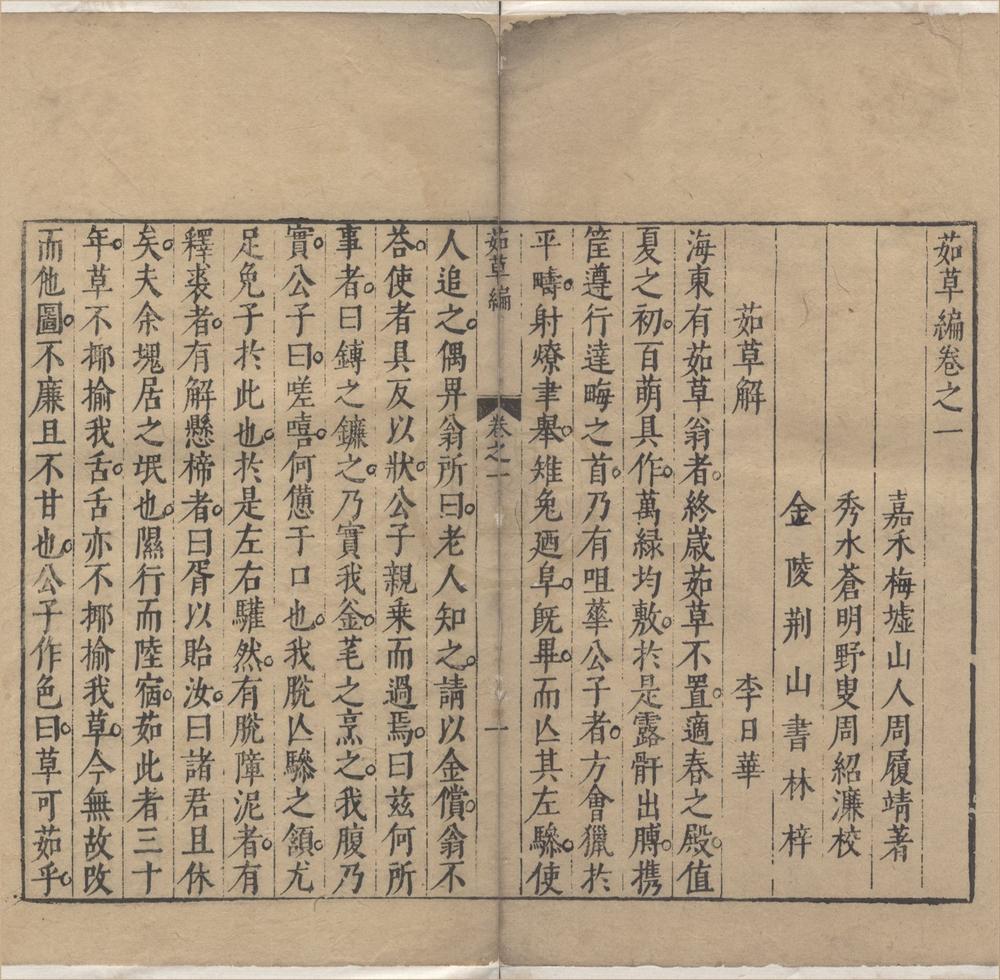 茹草編卷之一
嘉禾梅墟山人周履靖著
秀水蒼明野叟周紹濂校
金陵荆山書林梓
茹草解　李日華
海東有茹草翁者。終歲茹草不置。適春之殿。值
夏之初。百萌具作。萬綠均敷。於是露骭出膊。携
筐遵行達畮之首。乃有咀華公子者。方會獵於
平疇。射燎聿舉。雉兔廼阜。旣畢。而亾其左驂。使
茹草編　卷之一　一
人追之。偶畀翁所。曰。老人知之。請以金償。翁不
荅。使者具反以狀。公子親乗而過焉。曰兹何所
事者。曰鎛之鐮之。乃實我釜。芼之烹之。我腹乃
實。公子曰。嗟嘻。何憊于口也。我脫亾驂之頷。尤
足免子於此也。於是左右驩然。有脫障泥者。有
釋裘者。有解懸褅者。曰胥以貽汝。曰諸君且休
矣。夫余塊居之氓也。隰行而陸宿。茹此者三十
年。草不揶揄我舌。舌亦不揶揄我草。今無故改
而他圖。不廉且不甘也。公子作色曰。草可茹乎。